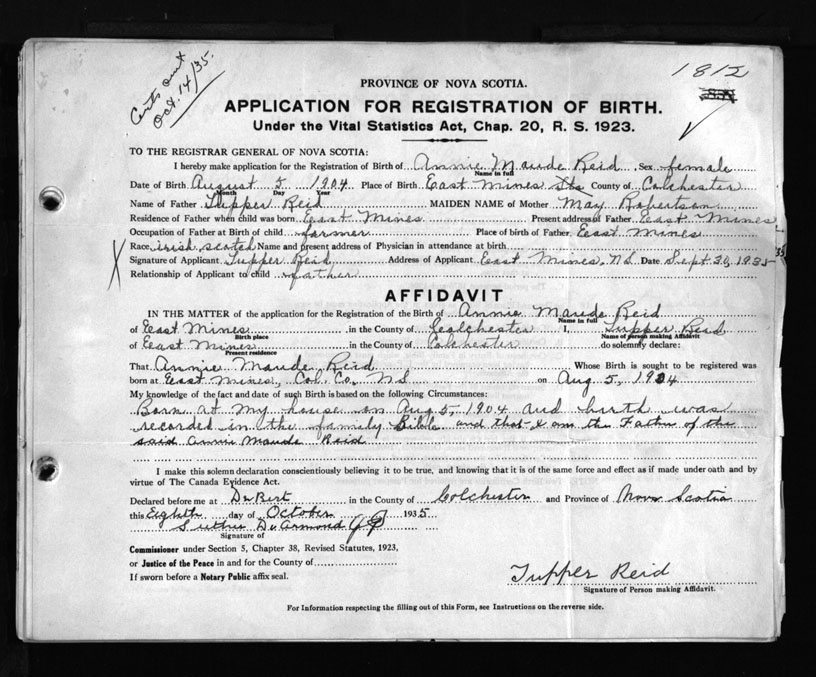 Certs sent
Oct. 14/35.
1812
PROVINCE OF NOVA SCOTIA.
APPLICATION FOR REGISTRATION OF BIRTH.
Under the Vital Statistics Act, Chap. 20, R. S. 1923.
TO THE REGISTRAR GENERAL OF NOVA SCOTIA:
I hereby make application for the Registration of Birth of Annie Maude Reid Sex female
Name in full
Date of Birth August 5 1904 Place of Birth East Mines Sta County of Colchester
Month Day Year
Name of Father Tupper Reid MAIDEN NAME of Mother May Robertson
Residence of Father when child was born East Mines Present address of Father East Mines
Occupation of Father at Birth of child farmer Place of birth of Father East Mines
Race irish scotch Name and present address of Physician in attendance at birth
Signature of Applicant Tupper Reid Address of Applicant East Mines, NS Date Sept 30, 1935
Relationship of Applicant to child father
AFFIDAVIT
IN THE MATTER of the application for the Registration of the Birth of Annie Maude Reid
Name in full
of East Mines in the County of Colchester I, Tupper Reid
Birth place Name of person making Affidavit
of East Mines in the County of Colchester do solemnly declare:
Present residence
That Annie Maude Reid Whose Birth is sought to be registered was
born at East Mines, Col. Co. NS on Aug 5, 1904
My knowledge of the fact and date of such Birth is based on the following Circumstances:
Born at my house on Aug 5, 1904 and birth was
recorded in the family Bible and that I am the Father of the
said Annie Maude Reid
I make this solemn declaration conscientiously believing it to be true, and knowing that it is of the same force and effect as if made under oath and by
virtue of The Canada Evidence Act.
Declared before me at DeBert in the County of Colchester and Province of Nova Scotia
this Eighth day of October 1935
Luther DeArmond JP
Signature of
Commissioner under Section 5, Chapter 38, Revised Statutes, 1923,
or Justice of the Peace in and for the County of
If sworn before a Notary Public affix seal.
Tupper Reid
Signature of Person making Affidavit.
For Information respecting the filling out of this Form, see Instructions on the reverse side.